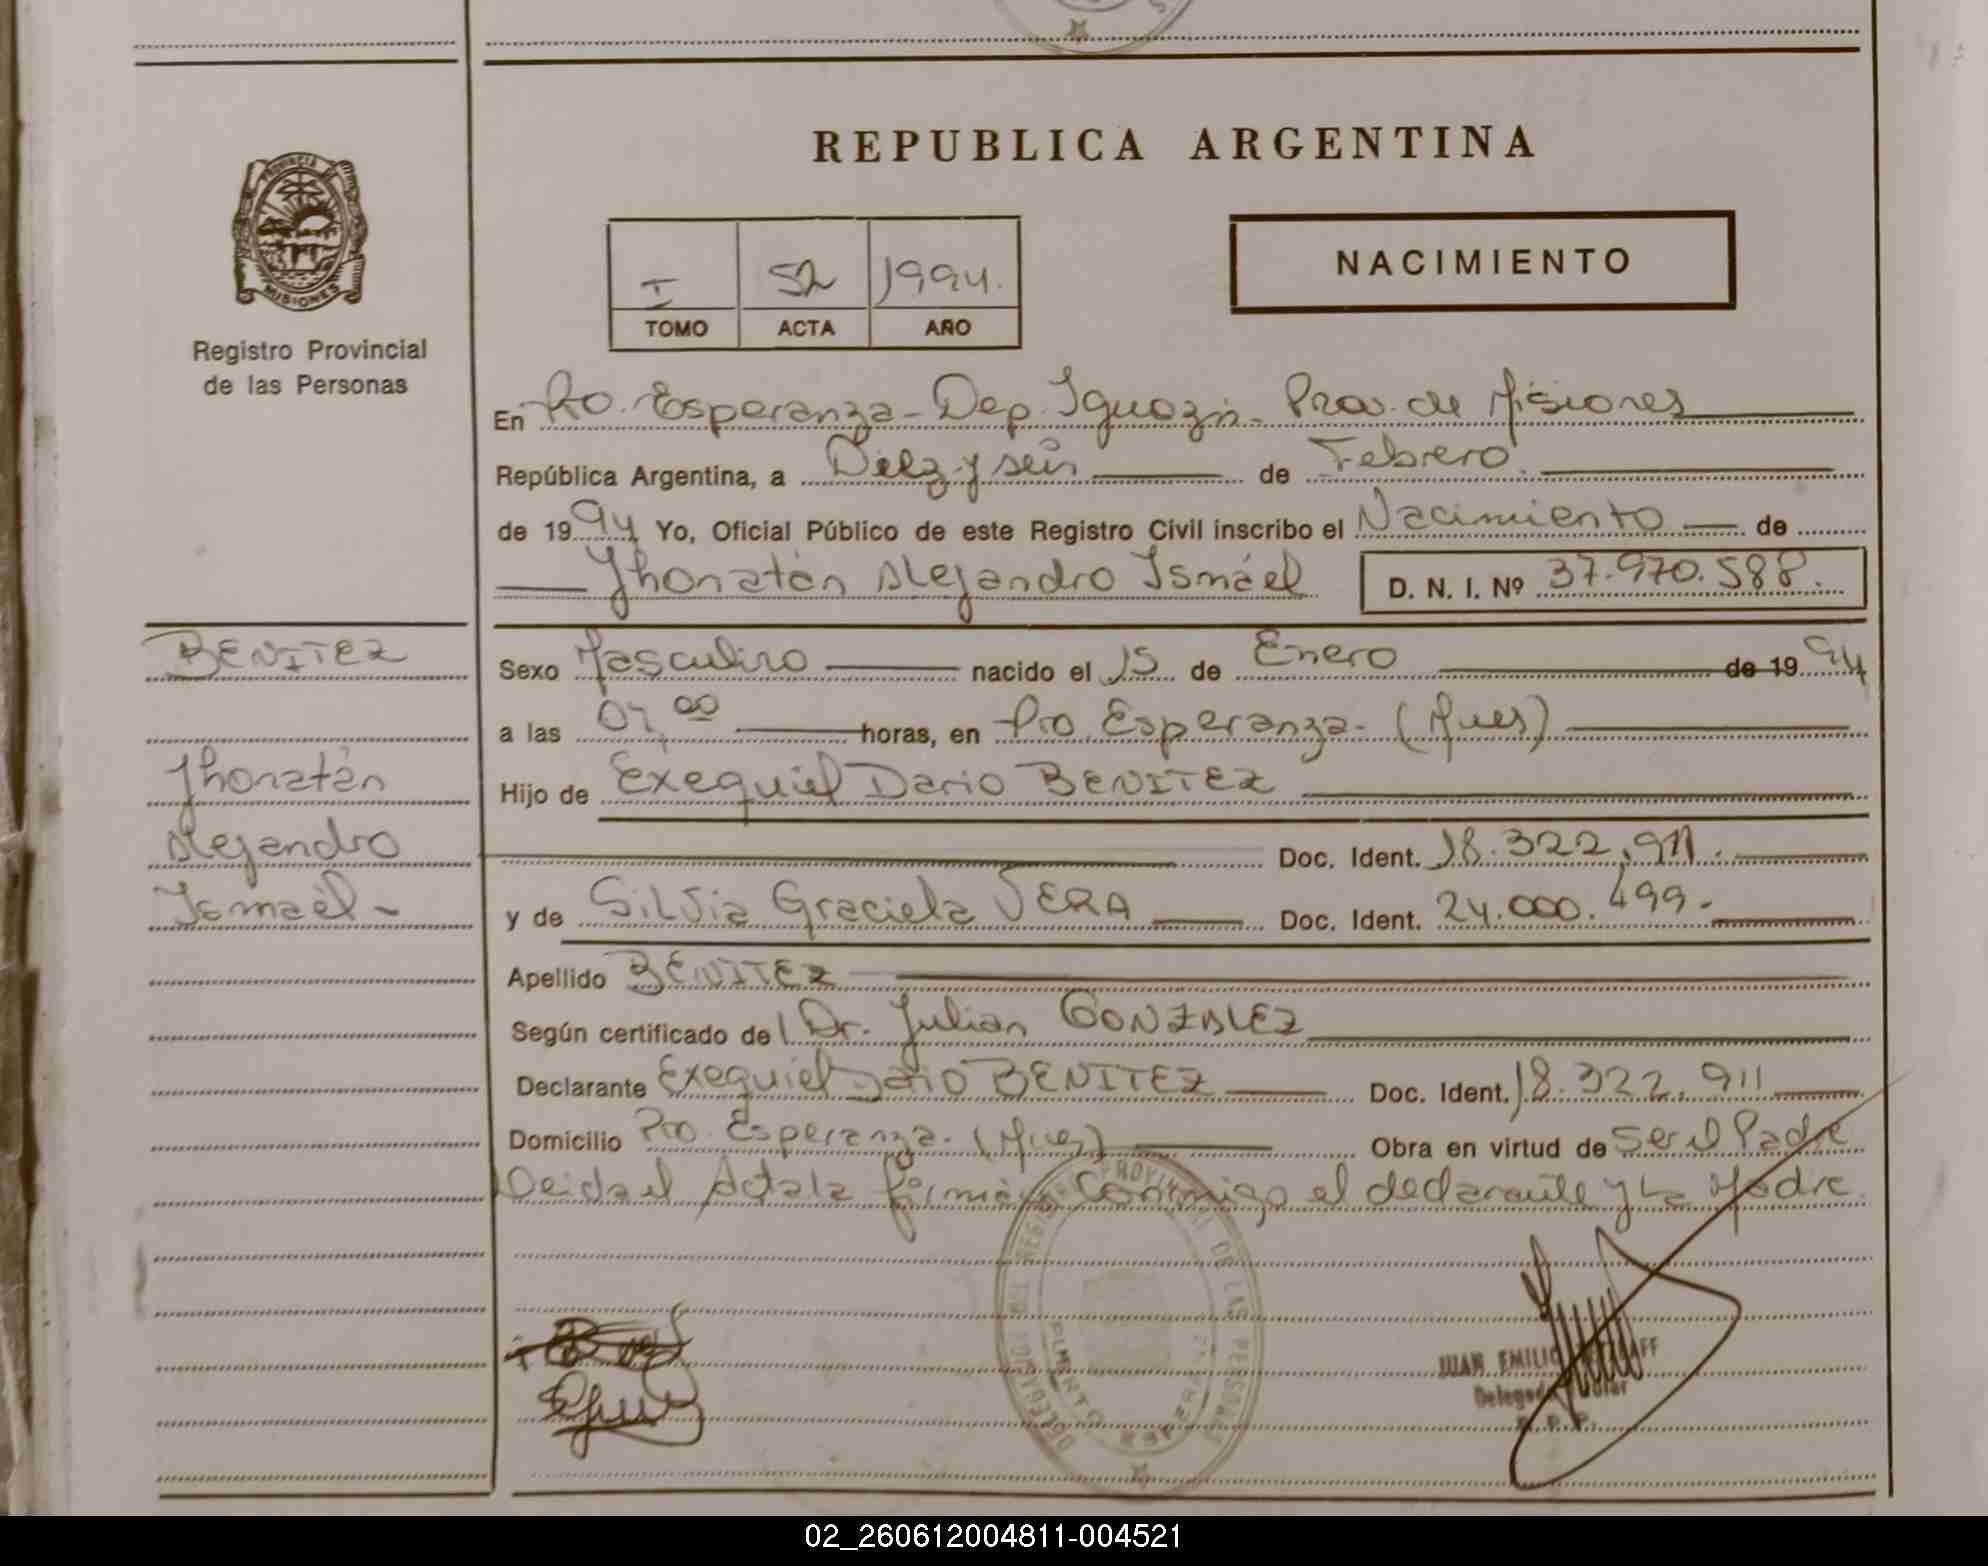 REPUBLICA ARGENTINA
PROVINCIA
MISIONES
Registro Provincial
de las Personas
I 52 1994.
TOMO ACTA AÑO
NACIMIENTO
En Pto. Esperanza - Dep. Iguazú - Prov. de Misiones
República Argentina, a Diez y seis de Febrero.
de 1994 Yo, Oficial Público de este Registro Civil inscribo el Nacimiento de
Jhonatán Alejandro Ismáel D. N. I. Nº 37.970.588.
BENITEZ
Jhonatán
Alejandro
Ismaél -
Sexo Masculino nacido el 15 de Enero de 1994
a las 07,00 horas, en Pto. Esperanza - (Mnes)
Hijo de Exequiel Dario BENITEZ
Doc. Ident. 18.322.911.
y de Silvia Graciela VERA Doc. Ident. 24.000.499.-
Apellido BENITEZ
Según certificado de Dr. Julian GONZALEZ
Declarante Exequiel Dario BENITEZ Doc. Ident. 18.322.911
Domicilio Pto. Esperanza - (Mnes) Obra en virtud de Ser el Padre
Leida el Acta la firman conmigo el declarante y la Madre.
REGISTRO PROVINCIAL DE LAS PERSONAS
JUAN EMILIO
Delegado Titular
R. P. P.
02_260612004811-004521